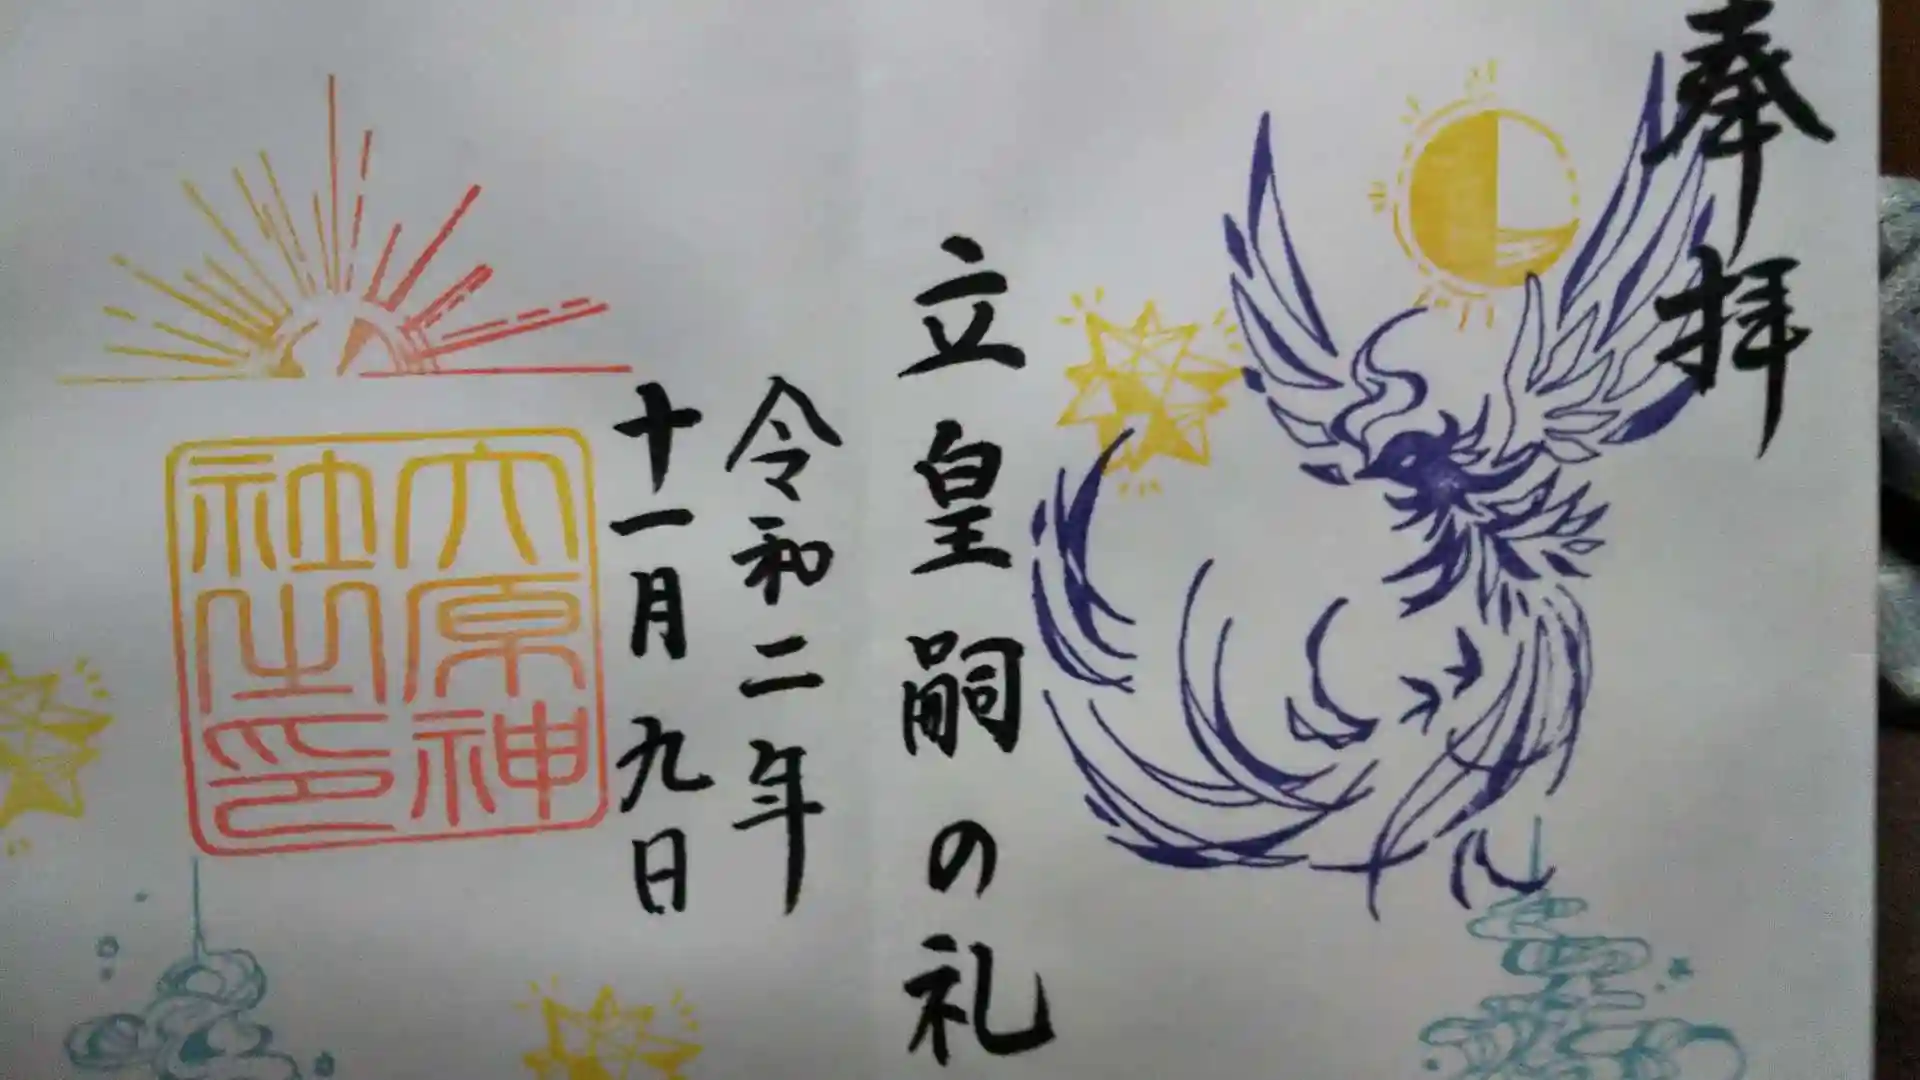 奉拝
立皇嗣の礼
令和二年
十一月九日
六原神
社之印